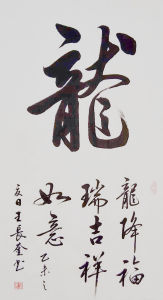 龍
龍降福
瑞吉祥
如意乙未之
夏日王長奎書